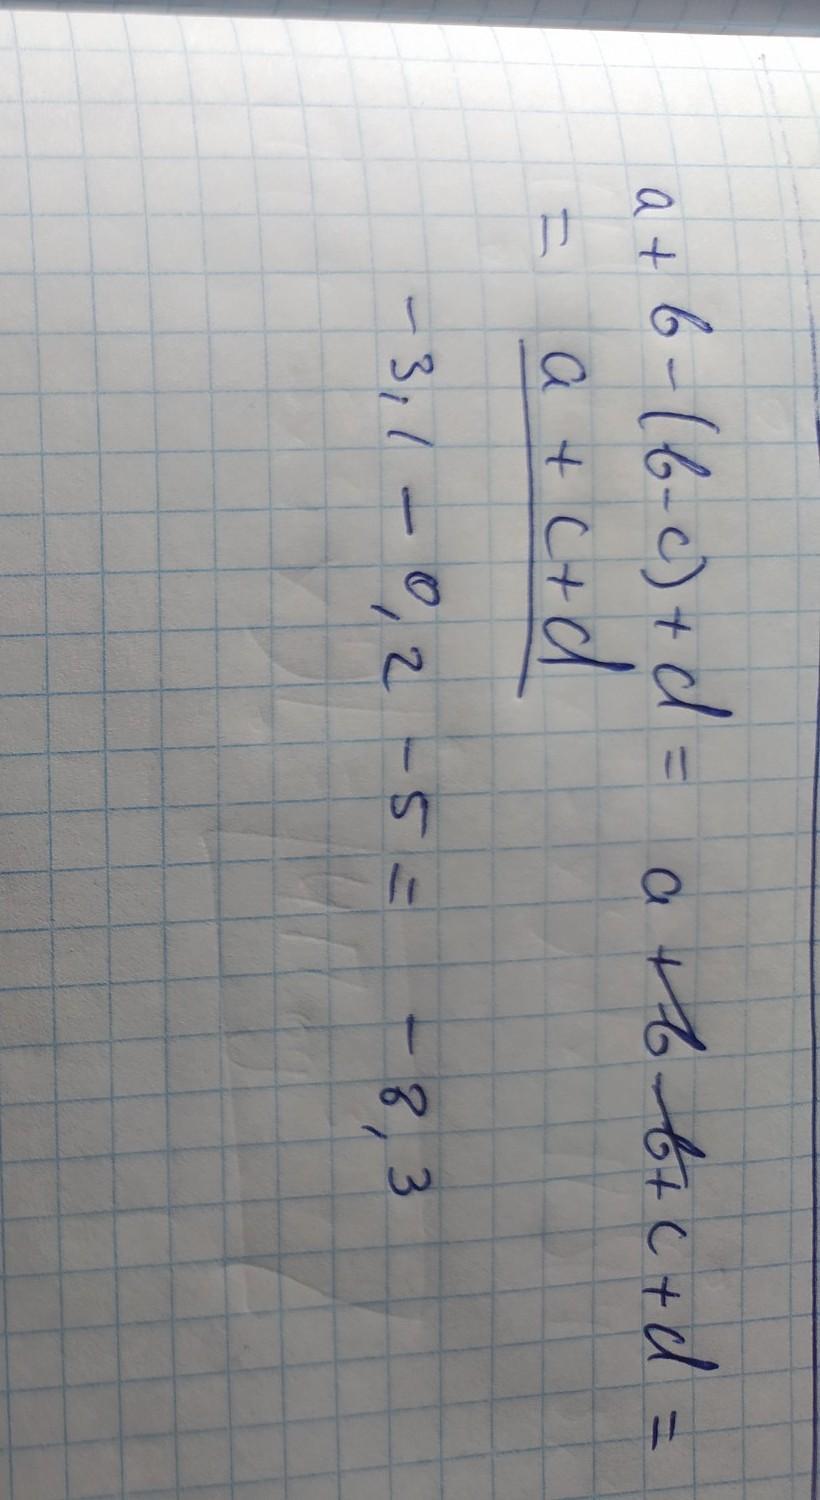 a + b - (b - c) + d = a + b - b + c + d =
= a + c + d
- 3,1 - 0,2 - 5 = - 8,3